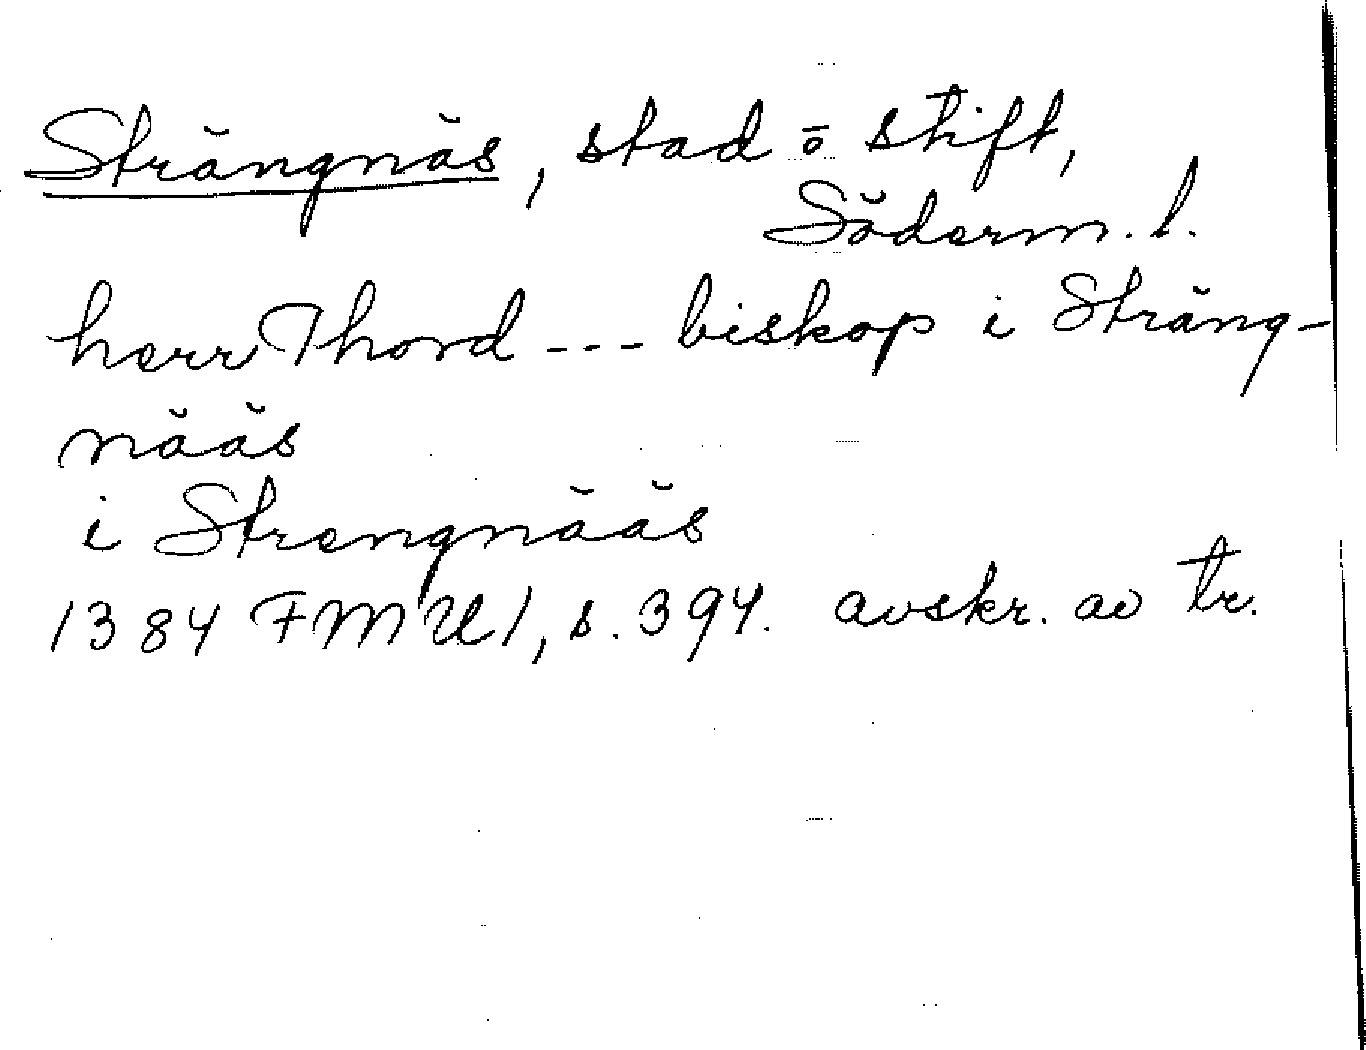 Strängnäs, stad ō stift,
Söderm. l.
herr Thord --- biskop i Sträng-
nääs
i Strengnääs
1384 FMU 1, s. 394. avskr. av tr.